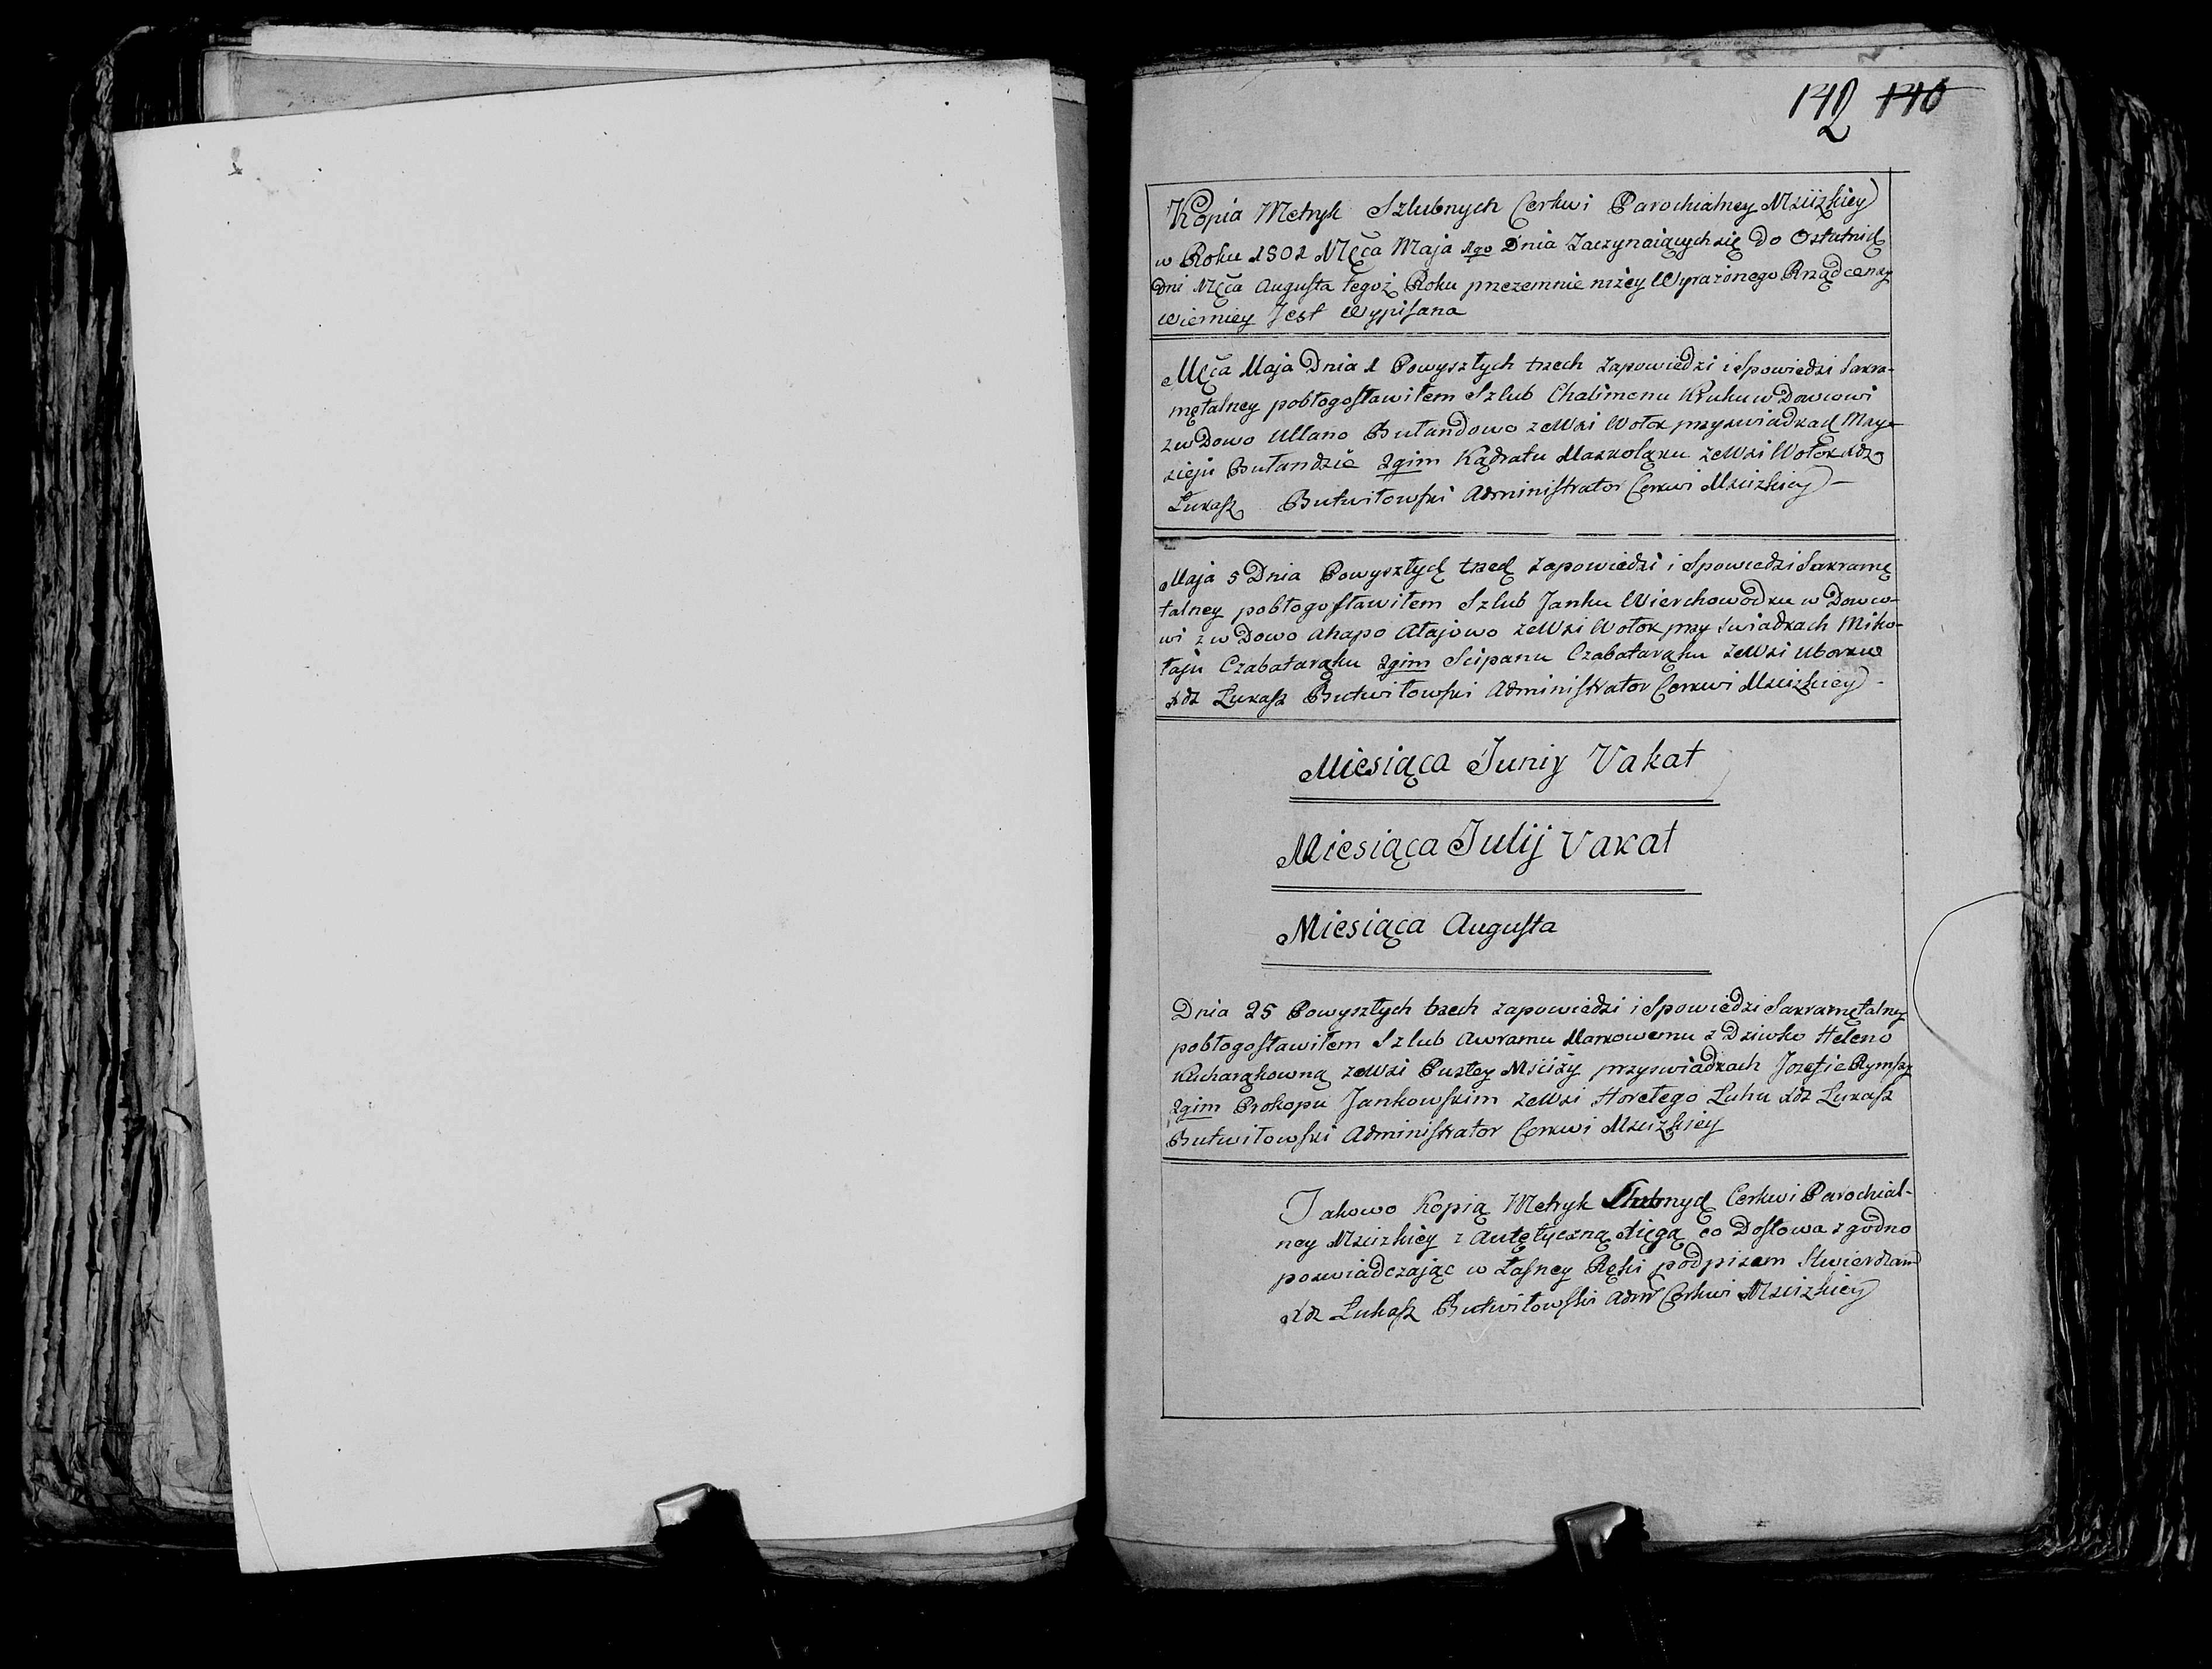 142 140
Kopia Metryk Szlubnych Cerkwi Parochialney Mściżkiey
w Roku 1801 Męca Maja 1go Dnia Zaczynaiących się do Ostatnich
Dni Męca Augusta tegoż Roku przezemnie niżey Wyrażonego Rządcę
wierniey Jest Wypisana
Męca Maja Dnia 1 Powyszłych trzech zapowiedzi i Spowiedzi Sakra-
mętalney pobłogosławiłem Szlub Chalimenu Kruku wDowcowi
z wDowo Ullano Bułandowo zeWsi Wołok przyswiadkach May-
sieju Bułandzie 2gim Kądratu Maskoląku zeWsi Wołok xdz
Łukasz Butwiłowski Administrator Cerkwi Mściżkiey
Maja 5 Dnia Powyszłych trzech zapowiedzi i Spowiedzi Sakramę
talney pobłogosławiłem Szlub Janku Wierchowodku wDowco-
wi z wDowo Ahapo Ałajowo zeWsi Wołok przy swiadkach Miko-
łaju Czabatarąku 2gim Scipanu Czabatarąku zeWsi Uborku
xdz Łukasz Butwiłowski Administrator Cerkwi Mściżkiey
Miesiąca Juniy Vakat
Miesiąca Julij Vakat
Miesiąca Augusta
Dnia 25 Powyszłych trzech zapowiedzi i Spowiedzi Sakramętalney
pobłogosławiłem Szlub Awramu Markowemu z Dziwko Heleno
Kucharąkowną zeWsi Pustey Mściży przyswiadkach Jozefie Rymszy
2gim Prokopu Jankowskim zeWsi Horełego Luhu xdz Łukasz
Butwiłowski Administrator Cerkwi Mściżkiey
Takowo Kopią Metryk Slubnych Cerkwi Parochial-
ney Mściżkiey z Autętyczną xięgą co Dosłowa zgodno
poswiadczając własney Ręki podpisem Stwierdzam
xdz Łukasz Butwiłowski Admr Cerkwi Mściżkiey